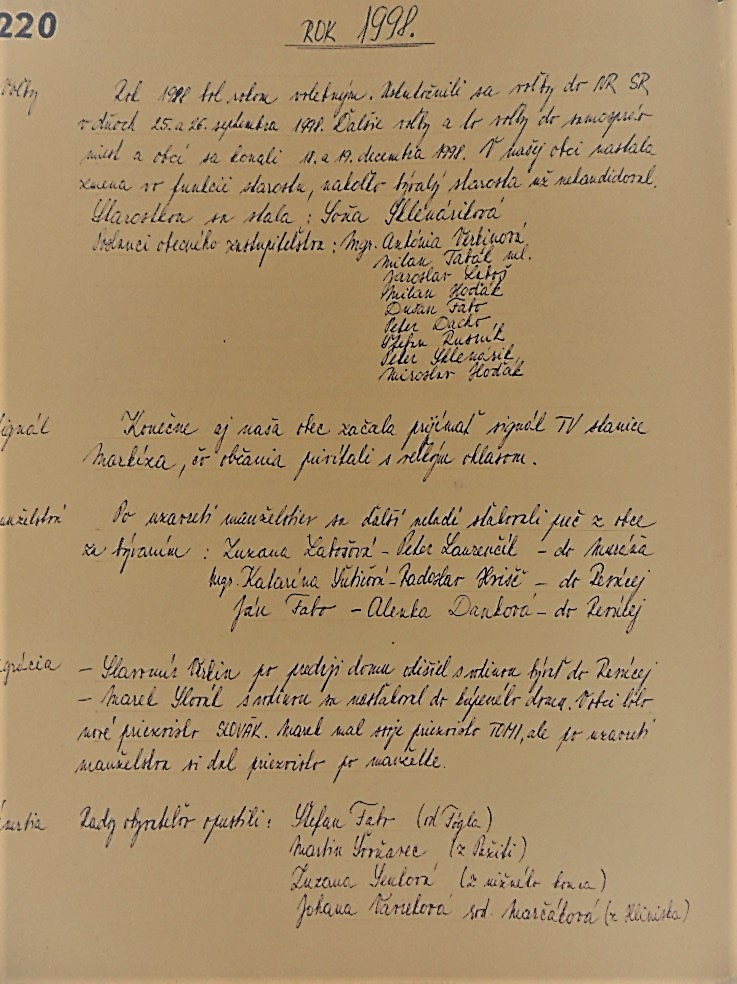 220
ROK 1998.
Voľby
Rok 1998 bol rokom volebným. Uskutočnili sa voľby do NR SR
v dňoch 25. a 26. septembra 1998. Ďalšie voľby a to voľby do samospráv
miest a obcí sa konali 18. a 19. decembra 1998. V našej obci nastala
zmena vo funkcii starostu, nakoľko bývalý starosta už nekandidoval.
Starostkou sa stala : Soňa Sklenáriková
Poslanci obecného zastupiteľstva : Mgr. Antónia Verbinová
Milan Tabák ml.
Jaroslav Laboš
Milan Hodák
Dušan Fabo
Peter Dacho
Štefan Rusník
Peter Sklenárik
Miroslav Hodák
signál
Konečne aj naša obec začala prijímať signál TV stanice
Markíza, čo občania privítali s veľkým ohlasom.
manželstvá
Po uzavretí manželstiev sa ďalší mladí sťahovali preč z obce
za bývaním : Zuzana Labošová - Peter Laurenčík - do
Mgr. Katarína - Radoslav Hrišč - do Revúcej
Ján Fabo - Alenka Danková - do Revúcej
grácia
- Slavomír Verbin po predaji domu odišiel s rodinou bývať do Revúcej
- Marek Slovák s rodinou sa nasťahoval do kúpeného domu. V obci bolo
nové priezvisko SLOVÁK. Marek mal svoje priezvisko TOMI, ale po uzavretí
manželstva si dal priezvisko po manželke.
Rady obyvateľov opustili : Štefan Fabo (od Fógla)
Martin (z Pažiti)
Zuzana (z nižného konca)
Johana rod. Marčáková (z Hliniska)